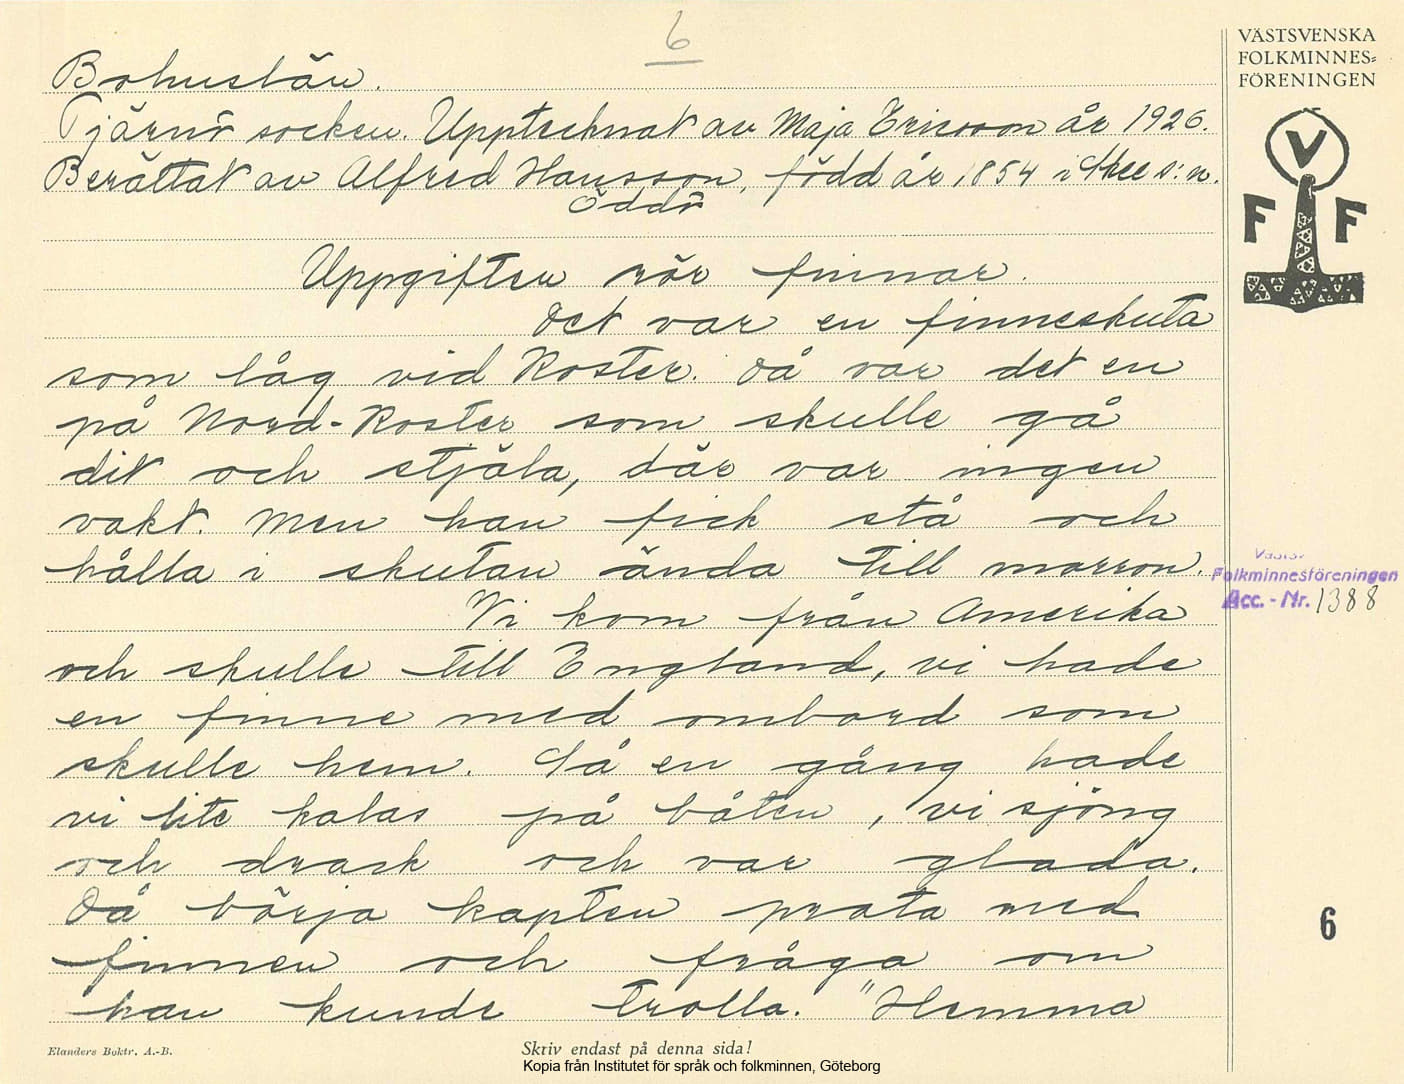 6
VÄSTSVENSKA
FOLKMINNES=
FÖRENINGEN
V
F F
Bohuslän.
Tjärnö socken. Upptecknat av Maja Ericsson år 1926.
Berättat av Alfred Hansson, född år 1854 i Skee s:n.
Öddö
Uppgiften rör finnar.
Det var en finneskuta
som låg vid Koster. Då var det en
på Nord-Koster som skulle gå
dit och stjäla, där var ingen
vakt. Men han fick stå och
hålla i skutan ända till morron.
Västsv.
Folkminnesföreningen
Acc. - Nr. 1388
Vi kom från Amerika
och skulle till England, vi hade
en finne med ombord som
skulle hem. Så en gång hade
vi lite kalas på båten, vi sjöng
och drack och var glada.
Då börja kapten prata med
finnen och fråga om
han kunde trolla. "Hemma
6
Elanders Boktr. A.-B.
Skriv endast på denna sida!
Kopia från Institutet för språk och folkminnen, Göteborg